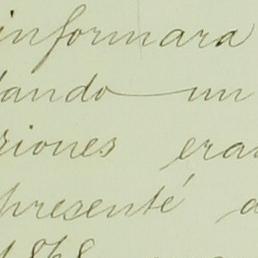 informara
tando un
riones eran
presenté a
1868